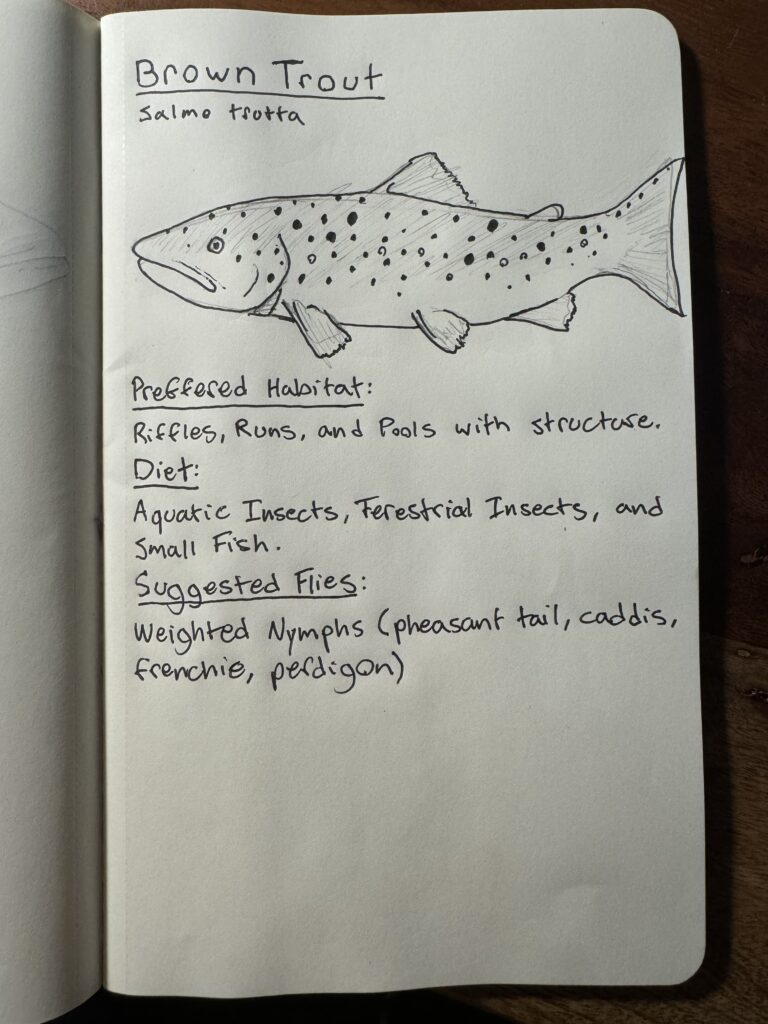 Brown Trout
Salmo trutta
Preffered Habitat:
Riffles, Runs, and Pools with structure.
Diet:
Aquatic Insects, Terestrial Insects, and
Small Fish.
Suggested Flies:
Weighted Nymphs (pheasant tail, caddis,
frenchie, perdigon)